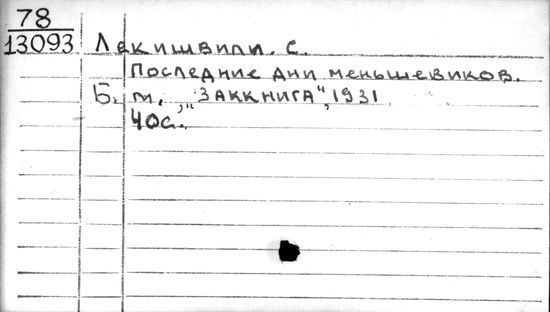 78
13093 Лекишвили. С.
Последние дни меньшевиков.
Б. м., "Заккнига", 1931
40с.